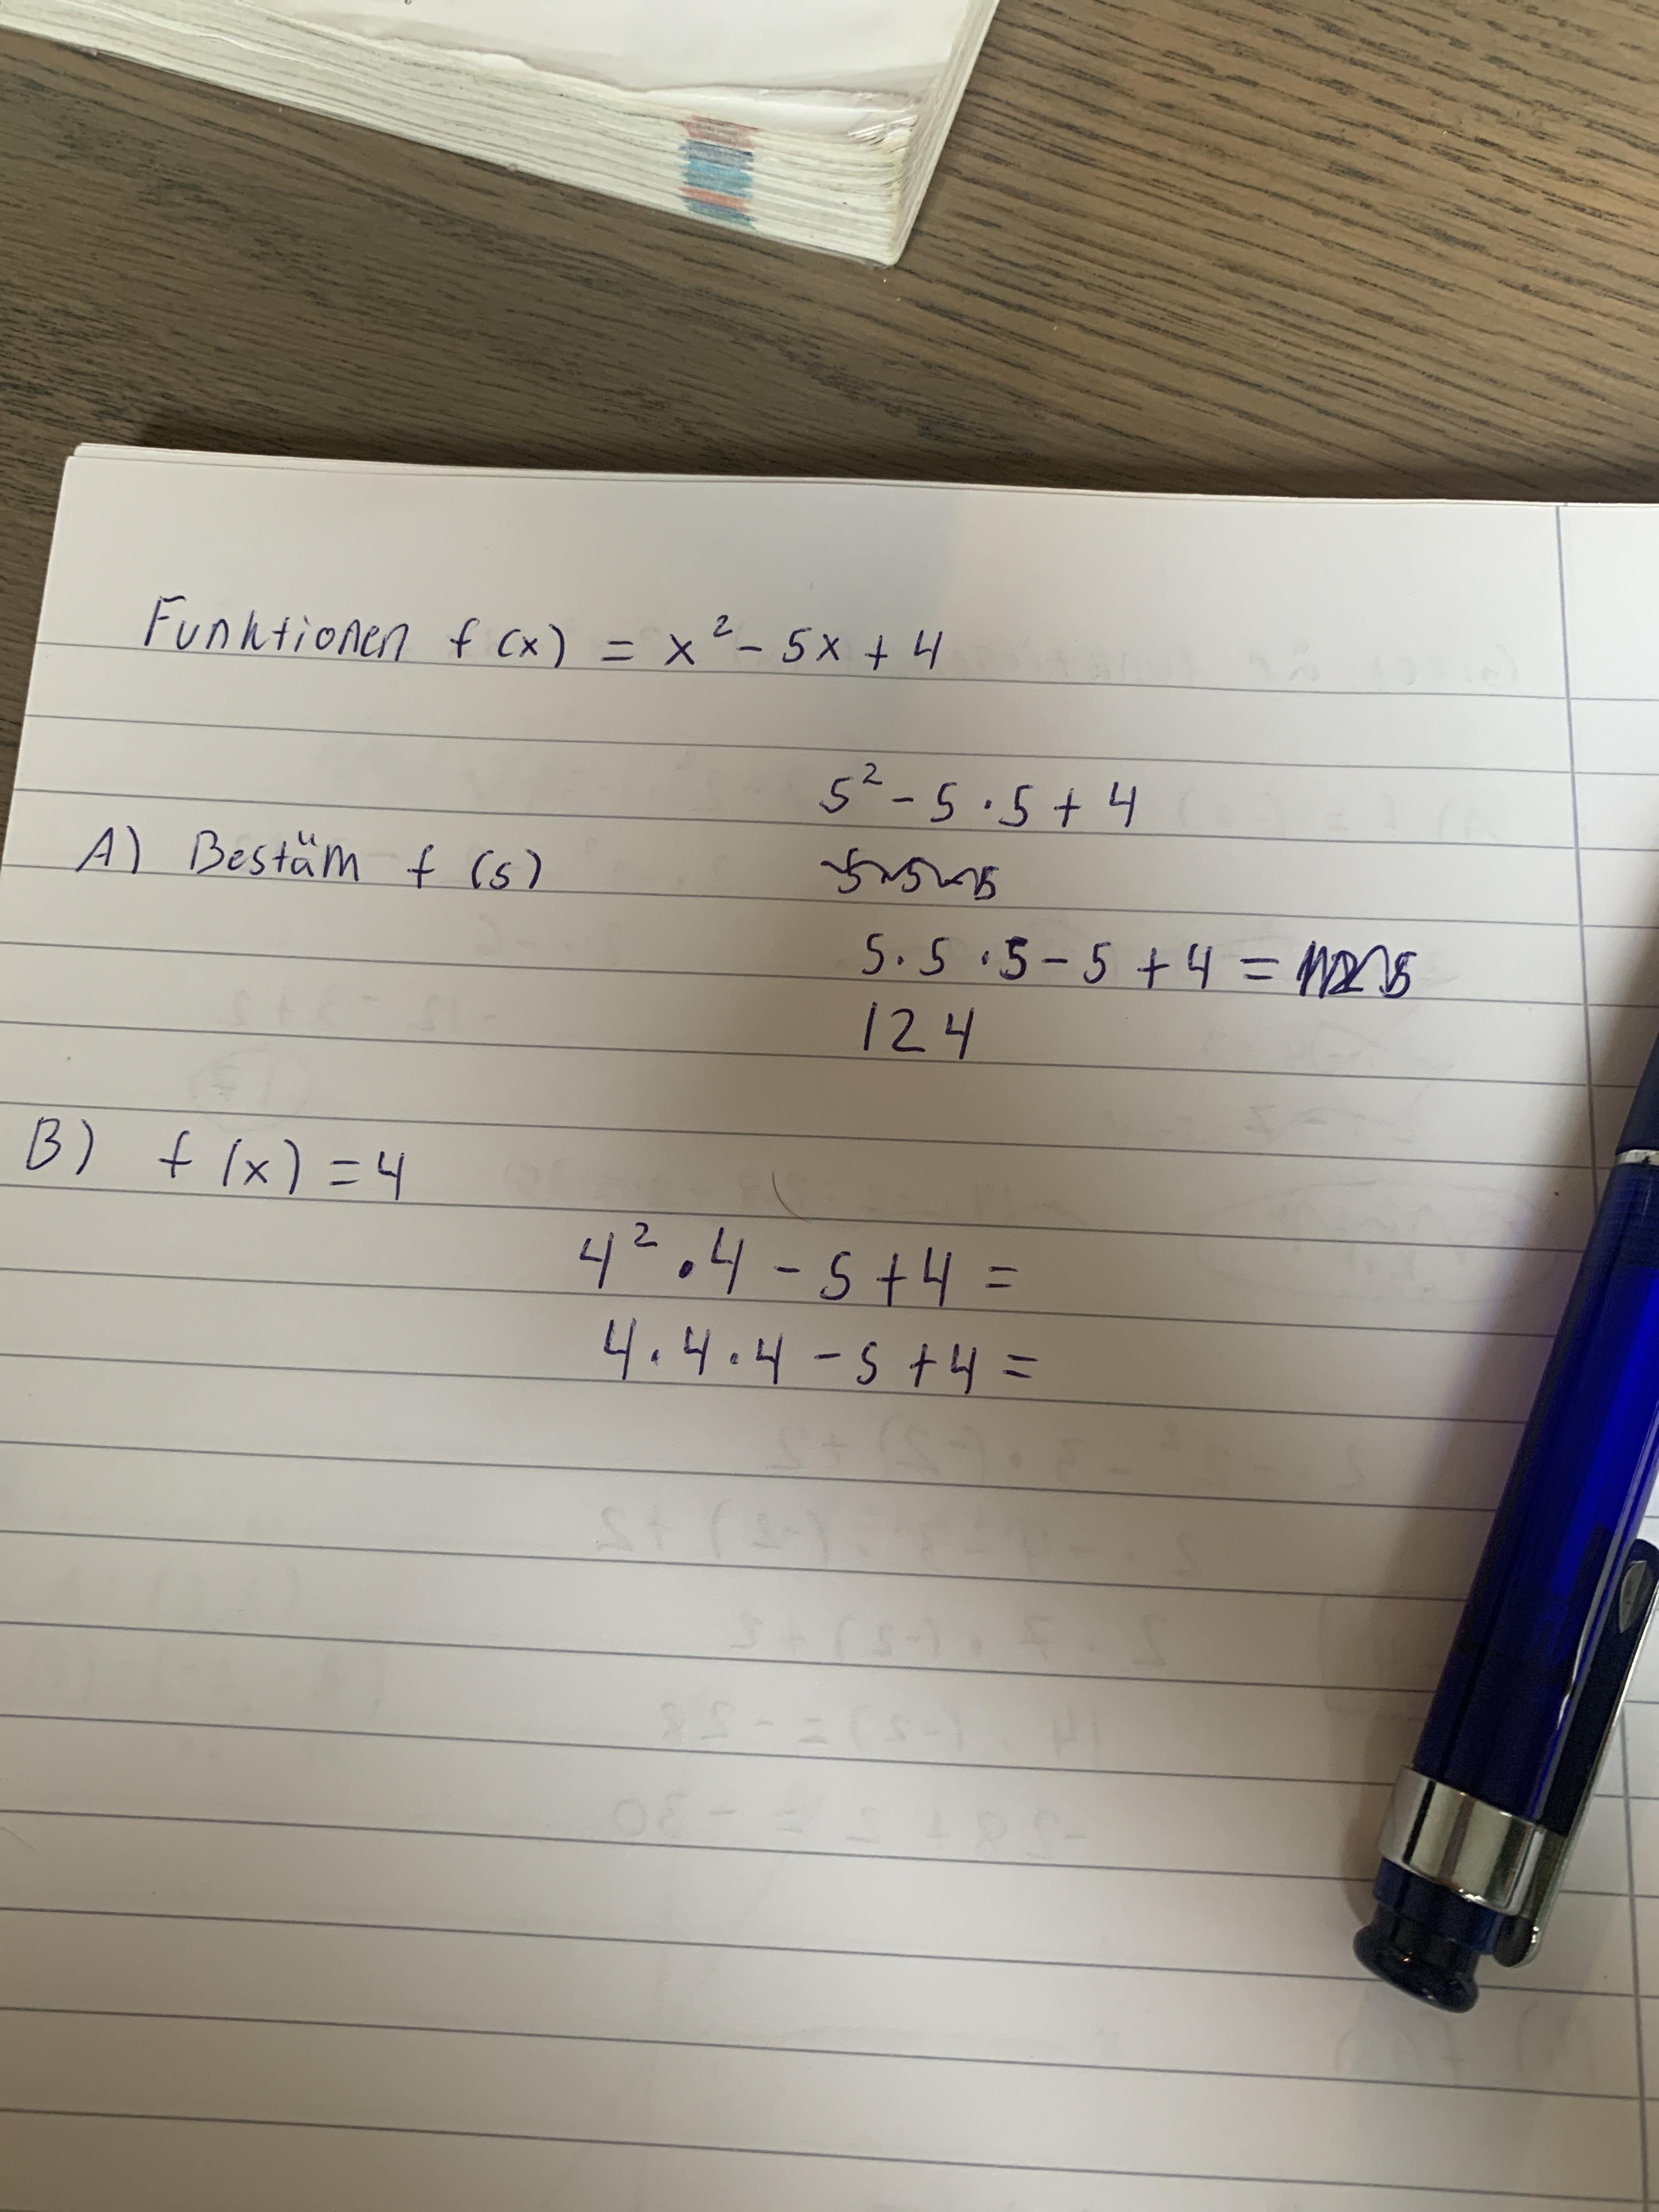 Funktionen f(x) = x² - 5x + 4
5² - 5 · 5 + 4
A) Bestäm f(5)
5 · 5 · 5 - 5 + 4 =
124
B) f(x) = 4
4² · 4 - 5 + 4 =
4 · 4 · 4 - 5 + 4 =